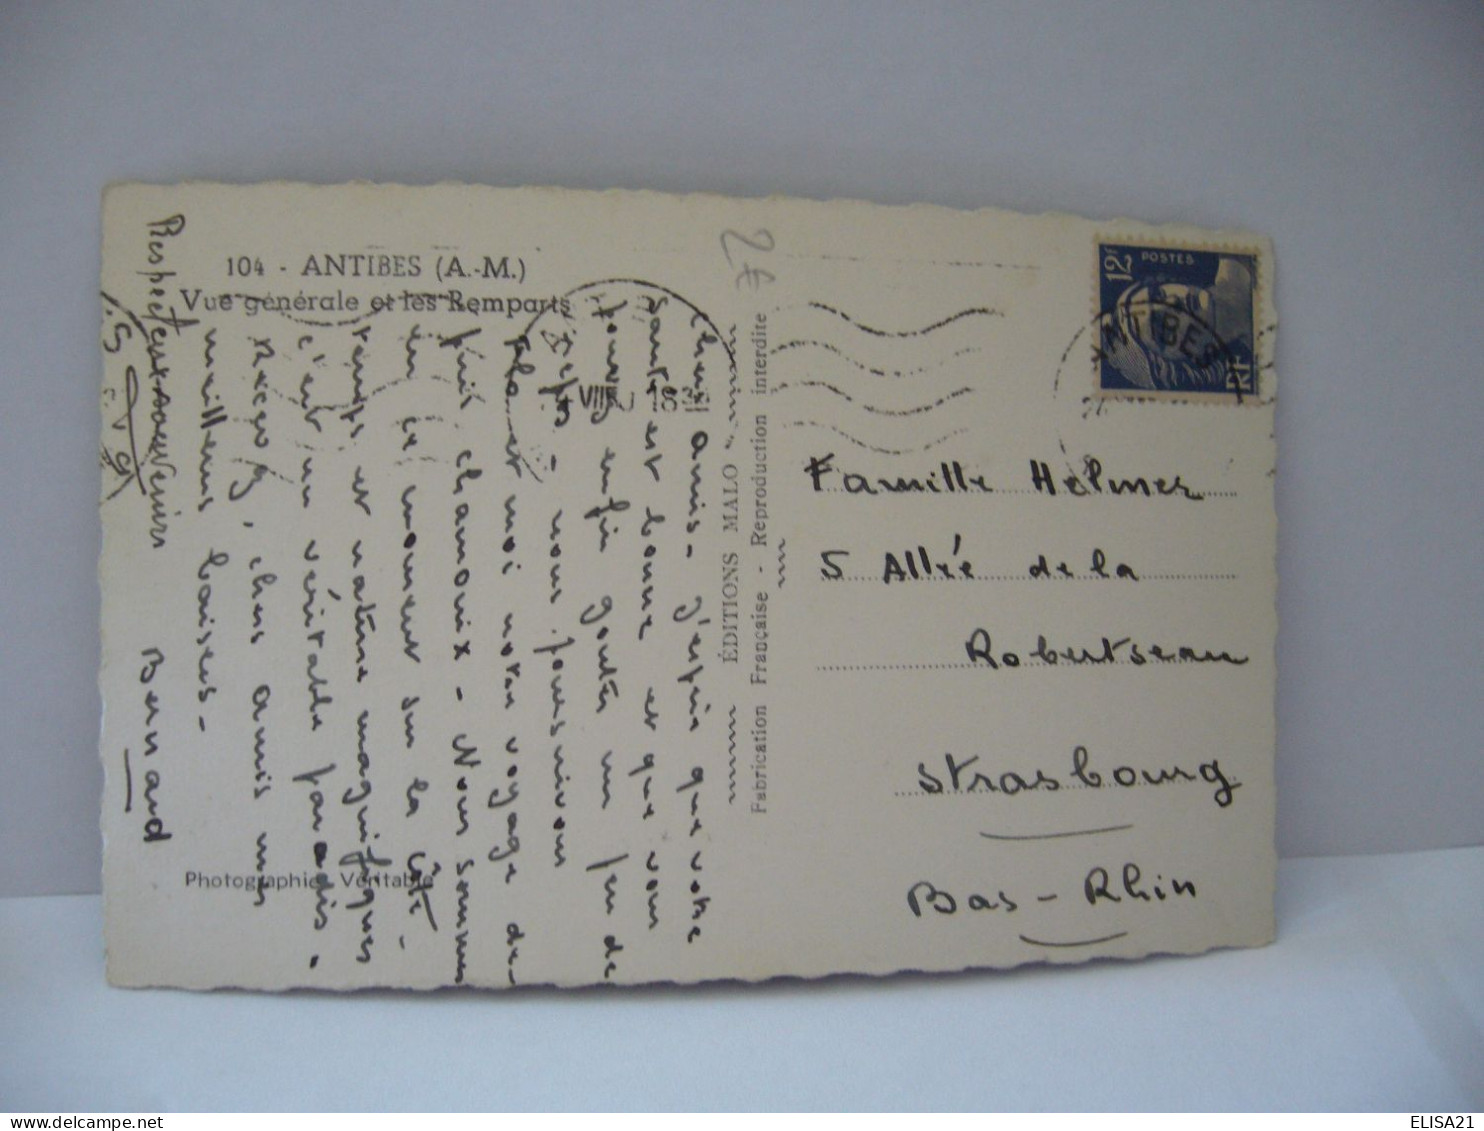 104 - ANTIBES (A.-M.)
Vue générale et les Remparts
Chers amis - J'espère que votre
santé est bonne et que vous
pouvez enfin goûter un peu de
repos - nous poursuivons
Flo et moi notre voyage de-
puis Chamonix - Nous sommes
en ce moment sur la Côte -
temps et nature magnifiques
c'est un véritable paradis .
Recevez, chers amis mes
meilleurs baisers -
Bernard
Respectueux souvenirs
Photographie Véritable
ÉDITIONS MALO
Fabrication Française - Reproduction interdite
2€
12F
POSTES
RF
ANTIBES
18H
VIII
Famille Helmer
5 Allée de la
Robertsau
Strasbourg
Bas-Rhin
ELISA21